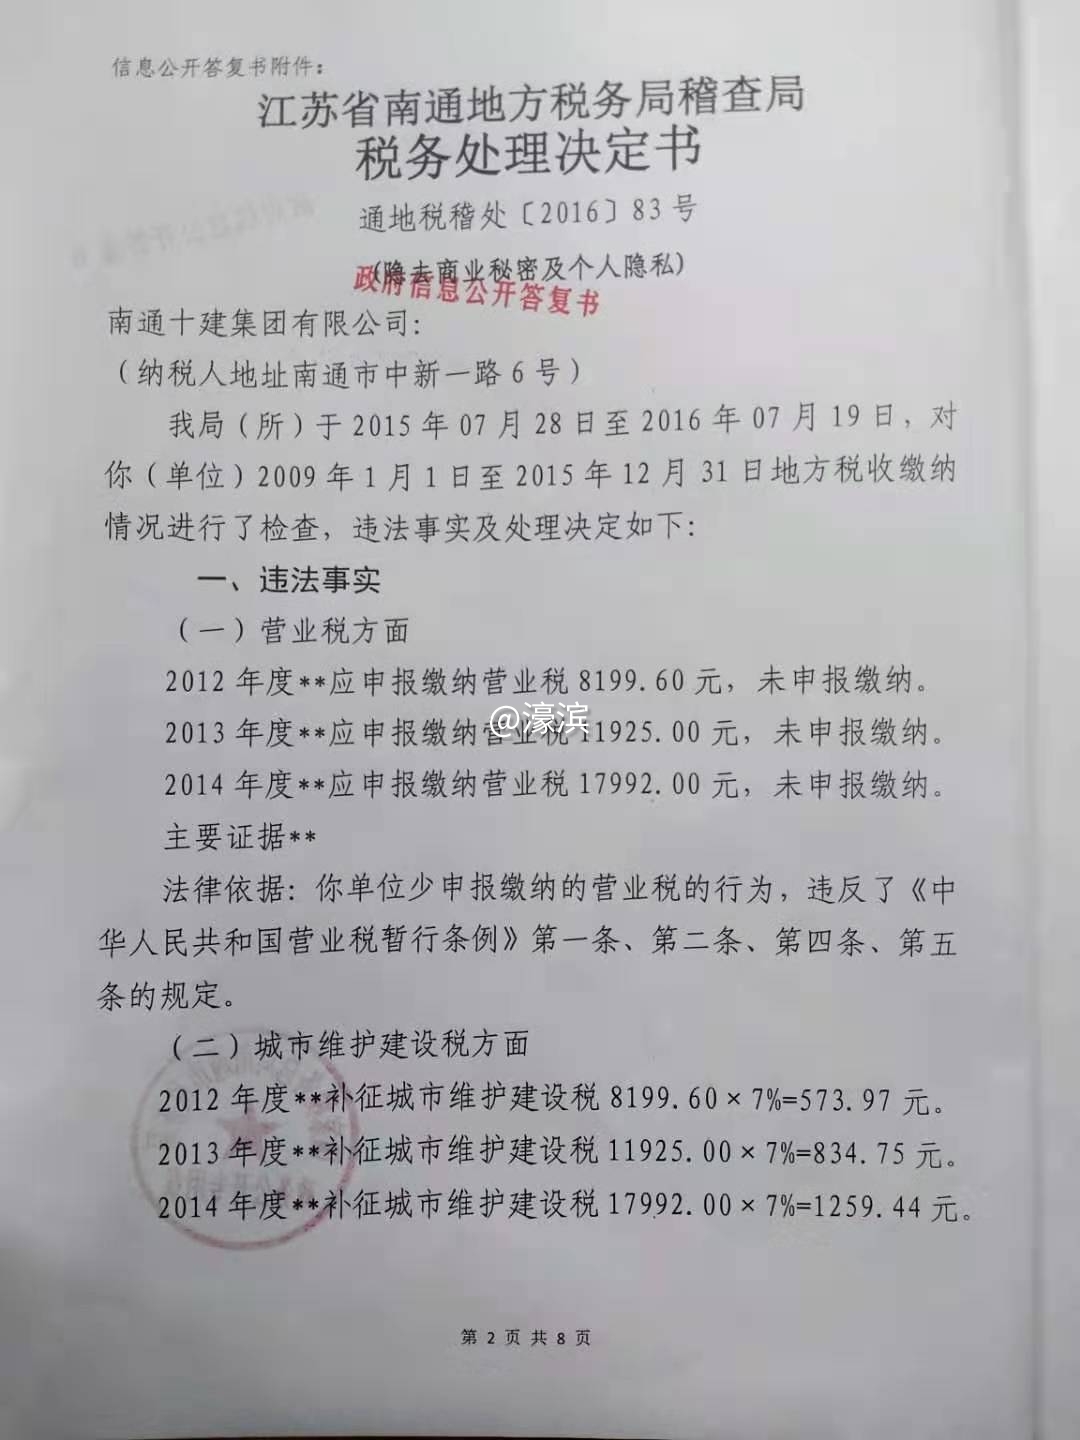 信息公开答复书附件：
江苏省南通地方税务局稽查局
税务处理决定书
通地税稽处〔2016〕83号
(隐去商业秘密及个人隐私)
政府信息公开答复书
南通十建集团有限公司：
（纳税人地址南通市中新一路6号）
我局（所）于2015年07月28日至2016年07月19日，对
你（单位）2009年1月1日至2015年12月31日地方税收缴纳
情况进行了检查，违法事实及处理决定如下：
一、违法事实
（一）营业税方面
2012年度**应申报缴纳营业税8199.60元，未申报缴纳。
@濠滨
2013年度**应申报缴纳营业税11925.00元，未申报缴纳。
2014年度**应申报缴纳营业税17992.00元，未申报缴纳。
主要证据**
法律依据：你单位少申报缴纳的营业税的行为，违反了《中
华人民共和国营业税暂行条例》第一条、第二条、第四条、第五
条的规定。
（二）城市维护建设税方面
2012年度**补征城市维护建设税8199.60×7%=573.97元。
2013年度**补征城市维护建设税11925.00×7%=834.75元。
2014年度**补征城市维护建设税17992.00×7%=1259.44元。
第 2 页 共 8 页